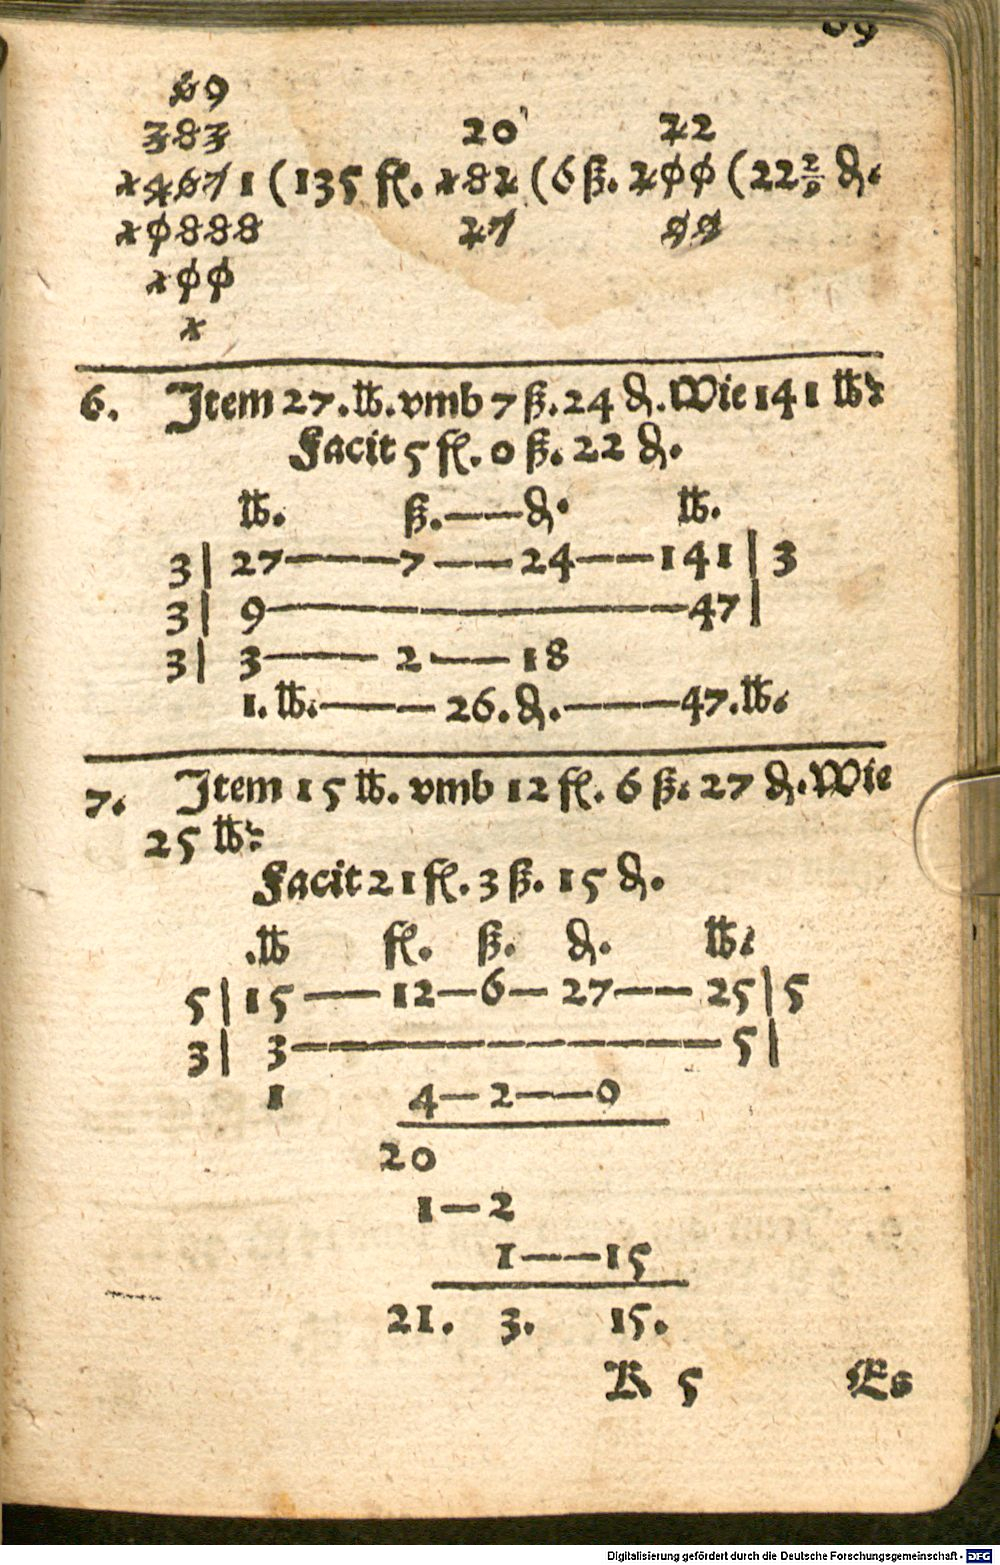 69
69
383
20 22
14671 (135 fl. 182 (6 ß. 200 (22 2/9 ₰.
10888 27 99
100
1
6. Item 27. ℔. vmb 7 ß. 24 ₰. Wie 141 ℔?
Facit 5 fl. 0 ß. 22 ₰.
℔. ß.——₰. ℔.
3| 27——7——24——141|3
3| 9————————47|
3| 3——2——18
1. ℔.——26. ₰.——47. ℔.
7. Item 15 ℔. vmb 12 fl. 6 ß. 27 ₰. Wie
25 ℔?
Facit 21 fl. 3 ß. 15 ₰.
.℔ fl. ß. ₰. ℔.
5| 15——12—6—27——25|5
3| 3————————5|
1 4—2——9
20
1—2
1——15
21. 3. 15.
K 5 Es
Digitalisierung gefördert durch die Deutsche Forschungsgemeinschaft - DFG